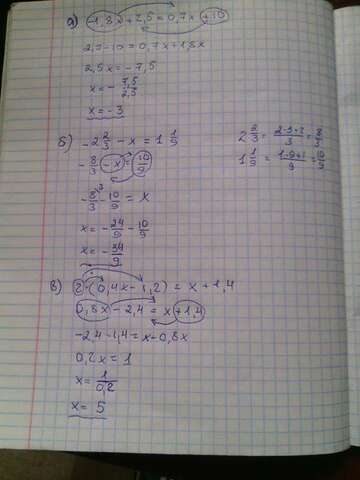 а) -1,8x+2,5=0,7x+10
2,5-10=0,7x+1,8x
2,5x=-7,5
x=-7,5/2,5
x=-3
б) -2 2/3 - x = 1 1/9
2 2/3 = 2·3+2/3 = 8/3
-8/3 - x = 10/9
1 1/9 = 1·9+1/9 = 10/9
-8/3 \3 - 10/9 = x
x=-24/9 - 10/9
x=-34/9
в) 2·(0,4x-1,2) = x+1,4
0,8x-2,4=x+1,4
-2,4-1,4=x-0,8x
0,2x=1
x=1/0,2
x=5